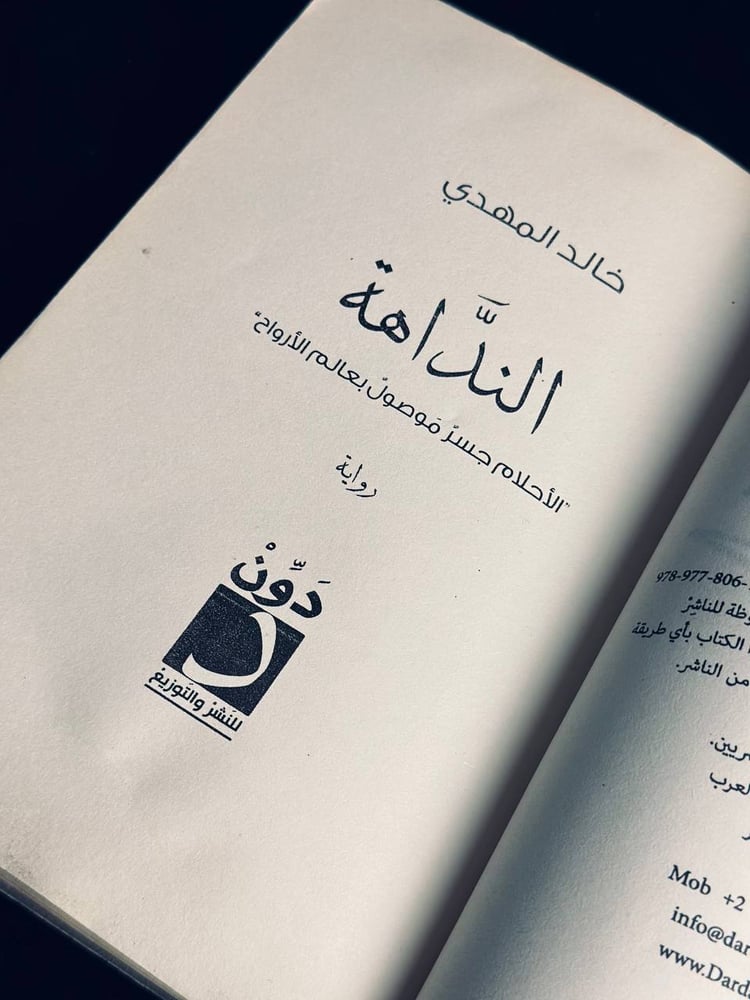 خالد المهدي
الندَّاهة
"الأحلام جسرٌ مَوصولٌ بعالم الأرواح"
رواية
دَوِّنْ
للنَشرْ والتَوزيعْ
978-977-806-
للناشِرْ
الكتاب بأي طريقة
من الناشر.
Mob +2
info@dar
www.Dard